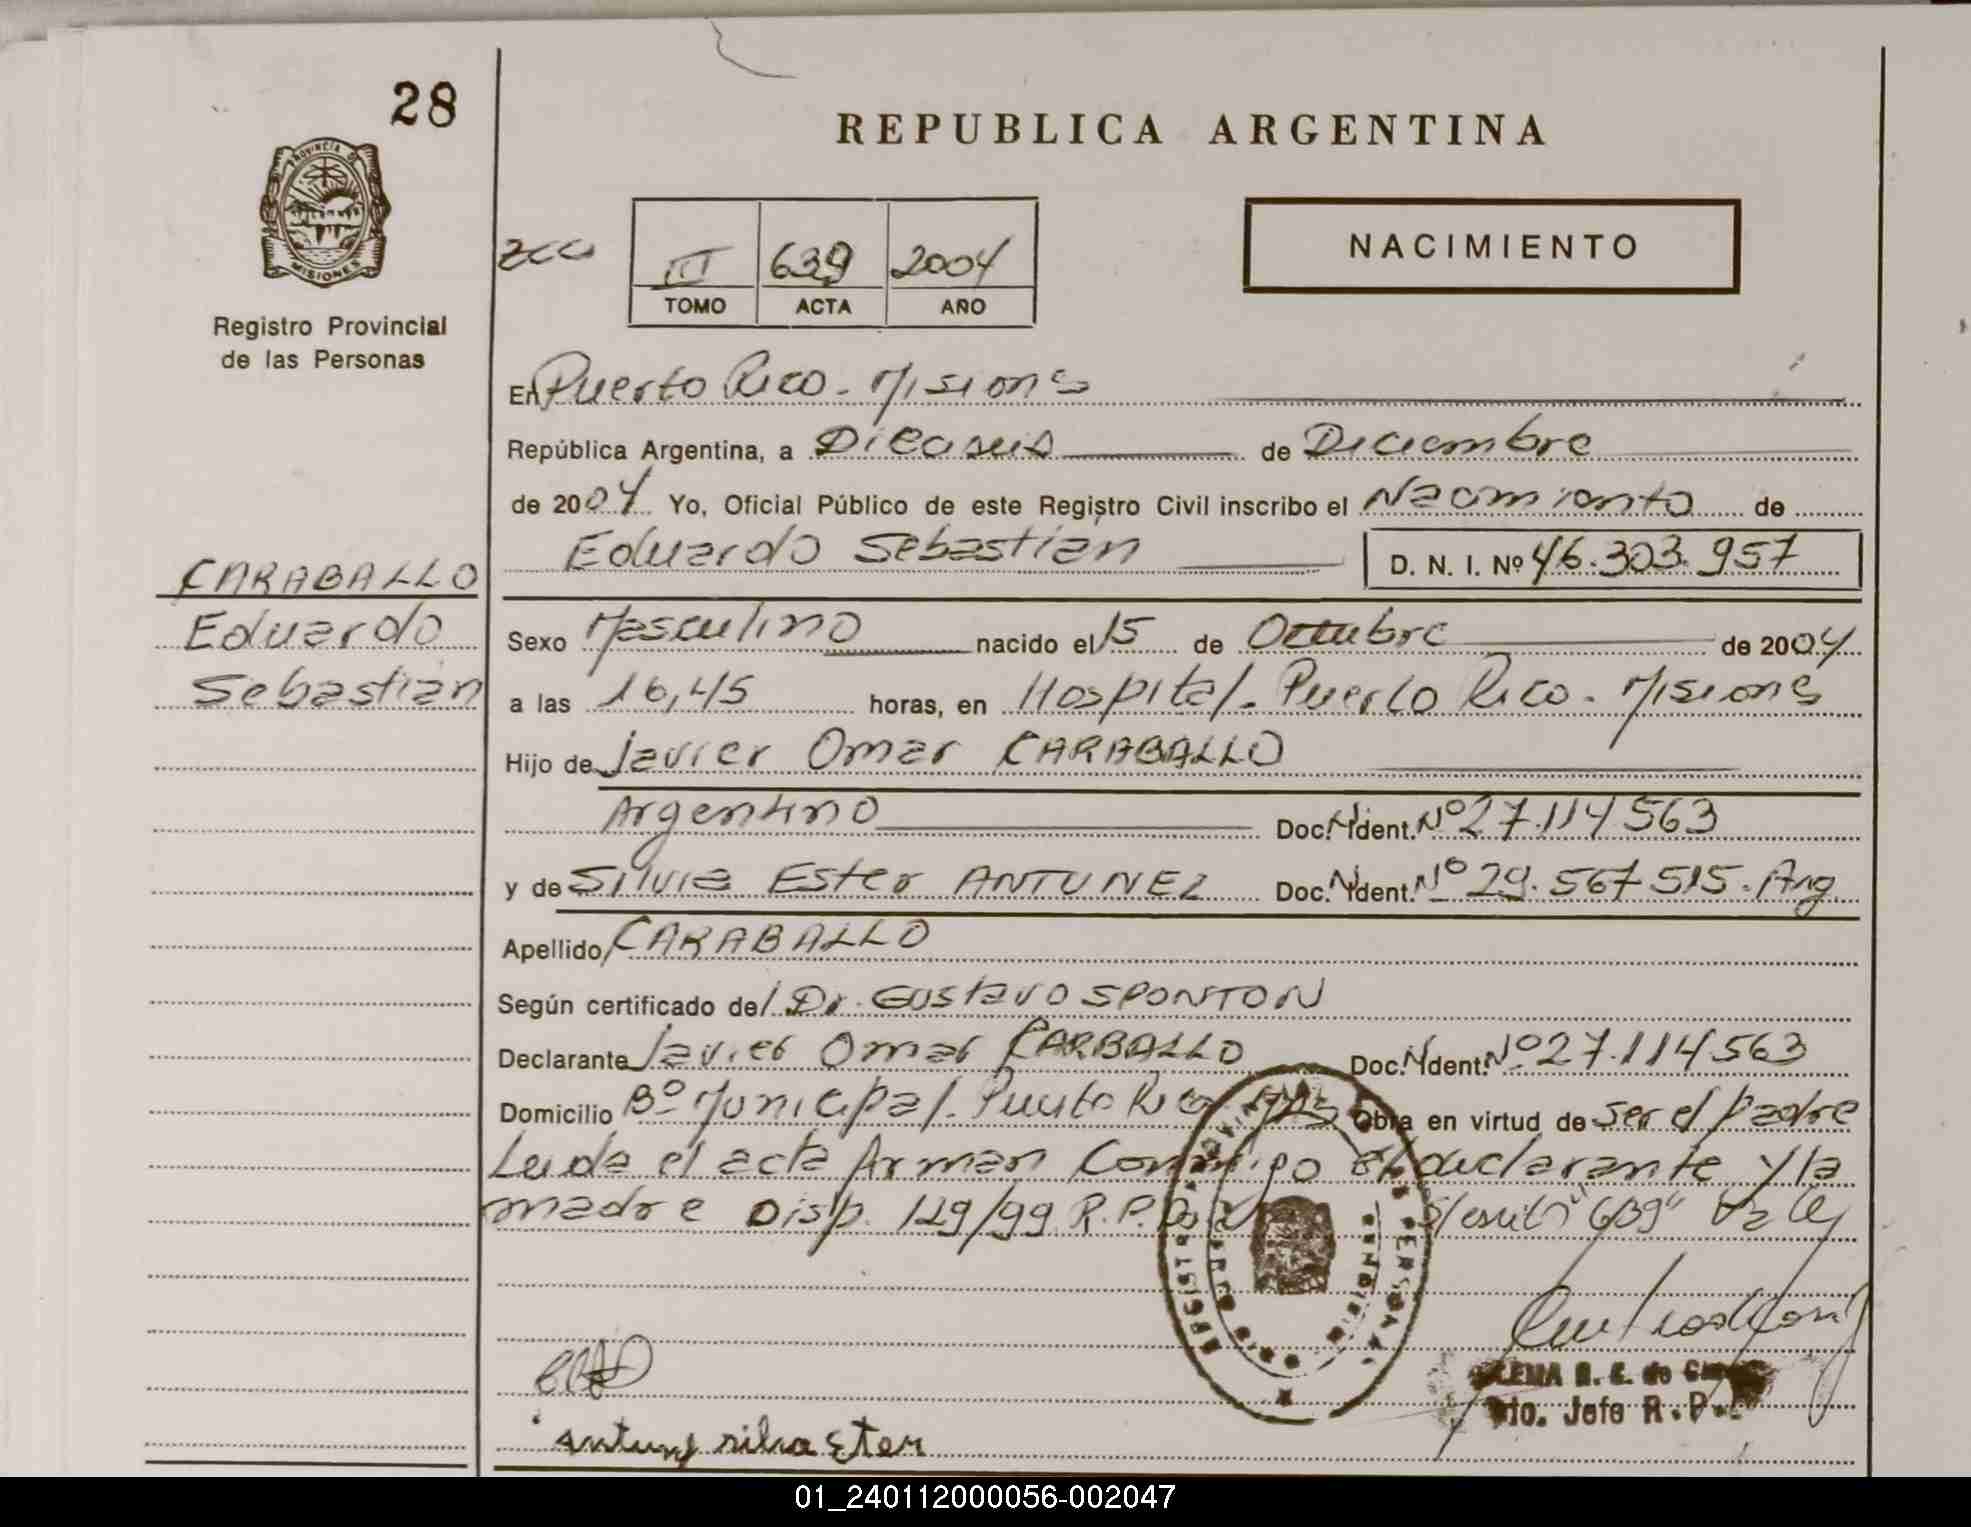 28
REPUBLICA ARGENTINA
PROVINCIA DE
MISIONES
Registro Provincial
de las Personas
III 639 2004
TOMO ACTA AÑO
NACIMIENTO
En Puerto Rico - Misiones
República Argentina, a Dieciseis de Diciembre
de 2004 Yo, Oficial Público de este Registro Civil inscribo el Nacimiento de
Eduardo Sebastián D. N. I. Nº 46.303.957
CARABALLO
Eduardo
Sebastián
Sexo Masculino nacido el 15 de Octubre de 2004
a las 16,45 horas, en Hospital - Puerto Rico - Misiones
Hijo de Javier Omar CARABALLO
Argentino Doc. Ident. Nº 27.114563
y de Silvia Ester ANTUNEZ Doc. Ident. Nº 29.567515. Arg.
Apellido CARABALLO
Según certificado del Dr. Gustavo SPONTON
Declarante Javier Omar CARBALLO Doc. Ident. Nº 27.114563
Domicilio Bº Municipal - Puerto Rico Obra en virtud de ser el padre
Leida el acta firman conmigo el declarante y la
madre Disp. 129/99 R.P.P. "639" Vale
Antunez silvia Ester
R. E. de
Jefe R. P.
01_240112000056-002047